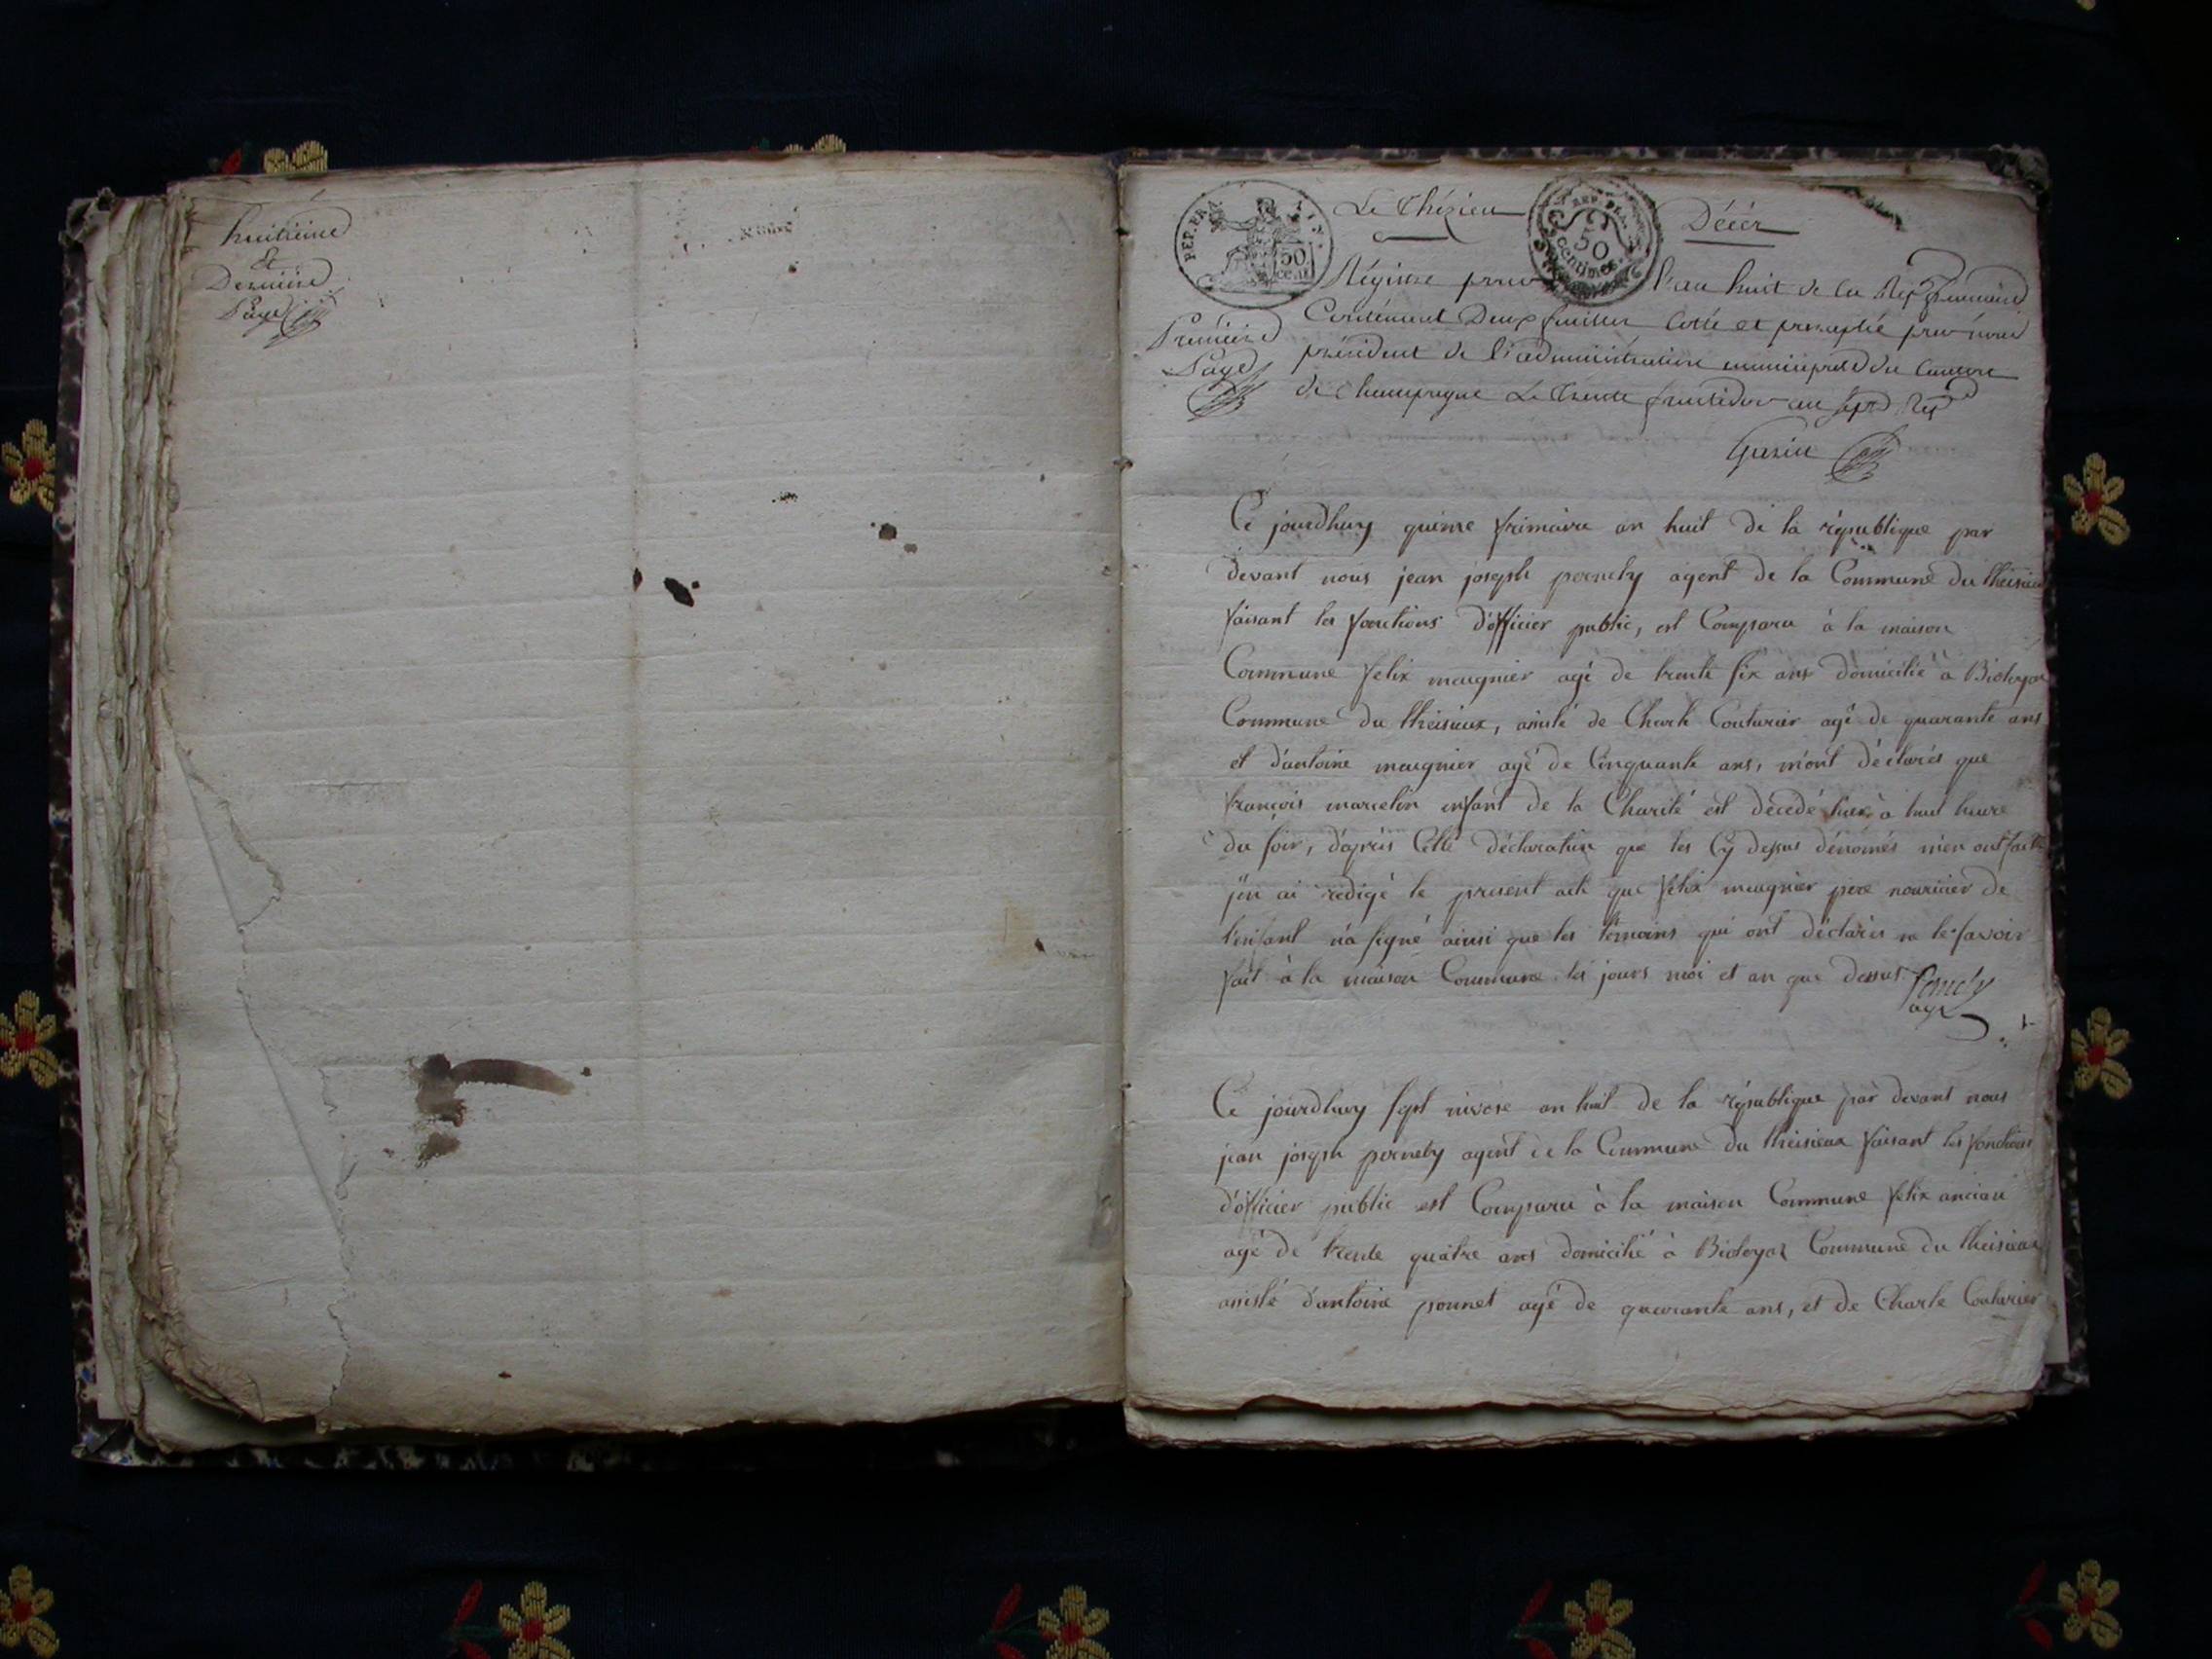 huitieme
et
Derniere
Page
REP. FRA
50
Le Thézieu
REP. FRA.
50
Centimes
Décès
Régistre pour l'an huit de la Rep
Contenant Deux feuilles Cotté et paraphé par nous
Premiere
Page
président de l'administration municipale du Canton
de Champagne Le Trente fructidor an sept Rep
Guzin
Ce jourdhuy quinze frimaire an huit de la république par
devant nous jean joseph agent de la Commune du theisieux
faisant les fonctions d'officier public, est Comparu à la maison
Commune felix meugnier agé de trente six ans domicilié à Bioleyas
Commune du theisieux, assisté de Charle Couturier agé de quarante ans
et d'antoine meugnier agé de Cinquante ans, m'ont déclarés que
françois marcelin enfant de la Charité est décédé hier à huit heure
du soir, d'après Cette déclaration que les Cy dessus dénomés m'en ont faite
j'en ai redigé le present acte que felix meugnier pere nouricier de
l'enfant n'a signé ainsi que les témoins qui ont déclarés ne le savoir
fait à la maison Commune les jours moi et an que dessus
agt
Ce jourdhuy sept nivose an huit de la république par devant nous
jean joseph agent de la Commune du theisieux faisant les fonctions
d'officier public est Comparu à la maison Commune felix ancian
agé de trente quatre ans domicilié à Bioleyas Commune du theisieux
assisté d'antoine ponnet agé de quarante ans, et de Charle Couturier